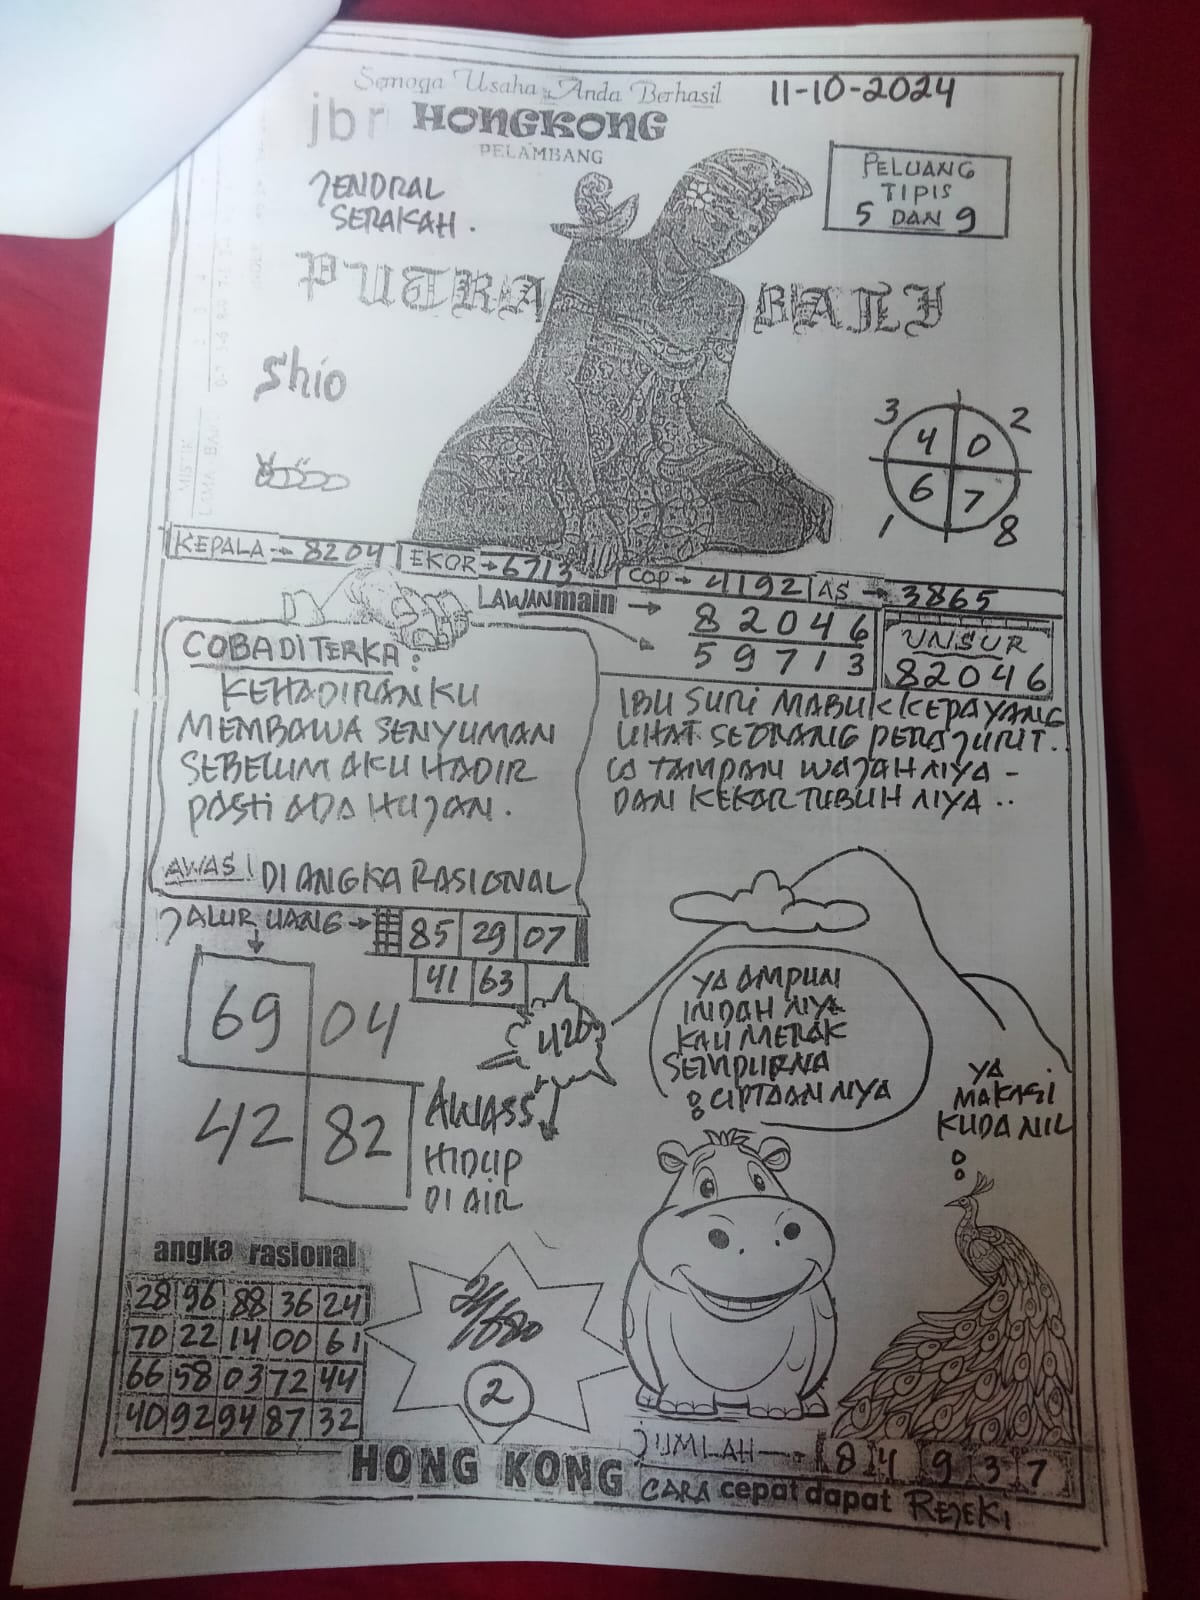 Semoga Usaha Anda Berhasil
11-10-2024
jbr HONGKONG
PELAMBANG
JENDRAL
SERAKAH.
PELUANG
TIPIS
5 DAN 9
PUTRA BALI
Shio
3 2
4 0
6 7
1 8
KEPALA → 8204 EKOR → 6713 COP → 4192 AS → 3865
LAWAN main →
82046
59713
UNSUR
82046
COBA DI TERKA :
KEHADIRAN KU
MEMBAWA SENYUMAN
SEBELUM AKU HADIR
PASTI ADA HUJAN.
AWAS! DI ANGKA RASIONAL
IBU SURI MABUK KEPAYANG
LIHAT SEORANG PERAJURIT..
TAMPAN WAJAH NYA -
DAN KEKAR TUBUH NYA ..
JALUR UANG → 85 29 07
41 63
69 04
42 82
AWASS
HIDUP
DI AIR
YA AMPUN
INDAH NYA
KAU MERAK
SEMPURNA
CIPTAAN NYA
YA
MAKASI
KUDA NIL
angka rasional
28 96 88 36 24
70 22 14 00 61
66 58 03 72 44
40 92 94 87 32
2
JUMLAH → 8 4 9 3 7
HONG KONG CARA cepat dapat REJEKI